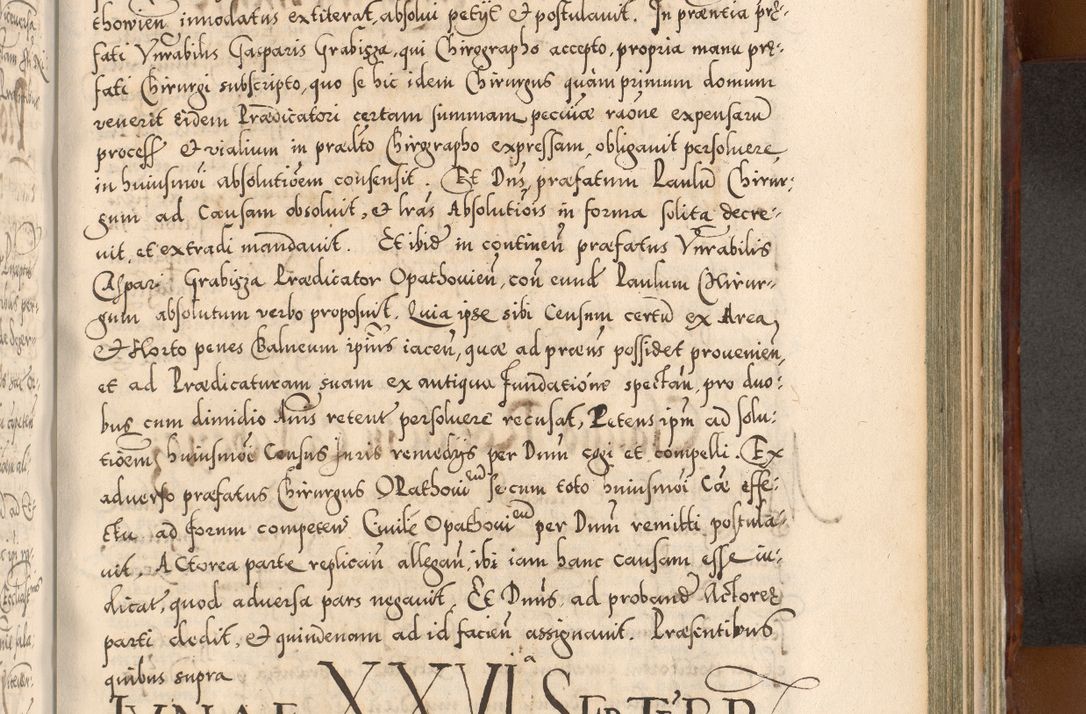 thowień innodatus extiterat, absolui petijt et postulauit. In præntia præ-
fati Vnrabilis Gasparis Grabigza, qui Chirographo accepto, propria manu præ-
fati Chirurgi subscripto, quo se hic idem Chirurgus quàm primum domum
venerit eidem Prædicatori certam summam pecuiæ raõne expensarũ
process et vialium in prædto Chirographo expressam, obligauit persoluere
in huiusmõi absolutiõem consensit. Et Dnus præfatum Paulũ Chirur-
gum ad Causam absoluit, et lras Absolutiõis in forma solita decre-
uit, et extradi mandauit. Et ibid in continen præfatus Vnrabilis
Caspari Grabigza Prædicator Opathouien, con eund Paulum Chirur-
gum absolutum verbo proposuit. Quia ipse sibi Censum certũ ex Area,
et Horto penes Balneum ipius iacen, quæ ad præns possidet prouenien,
et ad Prædicaturam suam ex antiqua fundatione spectan, pro duo-
bus cum dimidio Annis retent persoluere recusat, Petens ipm ad solu-
tioem huiusmõi Census Juris remedijs per Dnum cogi et compelli. Ex
aduerso præfatus Chirurgus Opathouien se cum toto huiusmõi Cãe effe-
ctu ad forum competens Ciuile Opathouien per Dnum remitti postula-
uit. Actorea parte replican allegan, ibi iam hanc causam esse iu-
dicat, quod aduersa pars negauit. Et Dnus ad proband Actoreæ
parti dedit, et quindenam ad id facien assignauit. Præsentibus
quibus supra
LVNAE XXVI<sup>a</sup> SEPTEBR